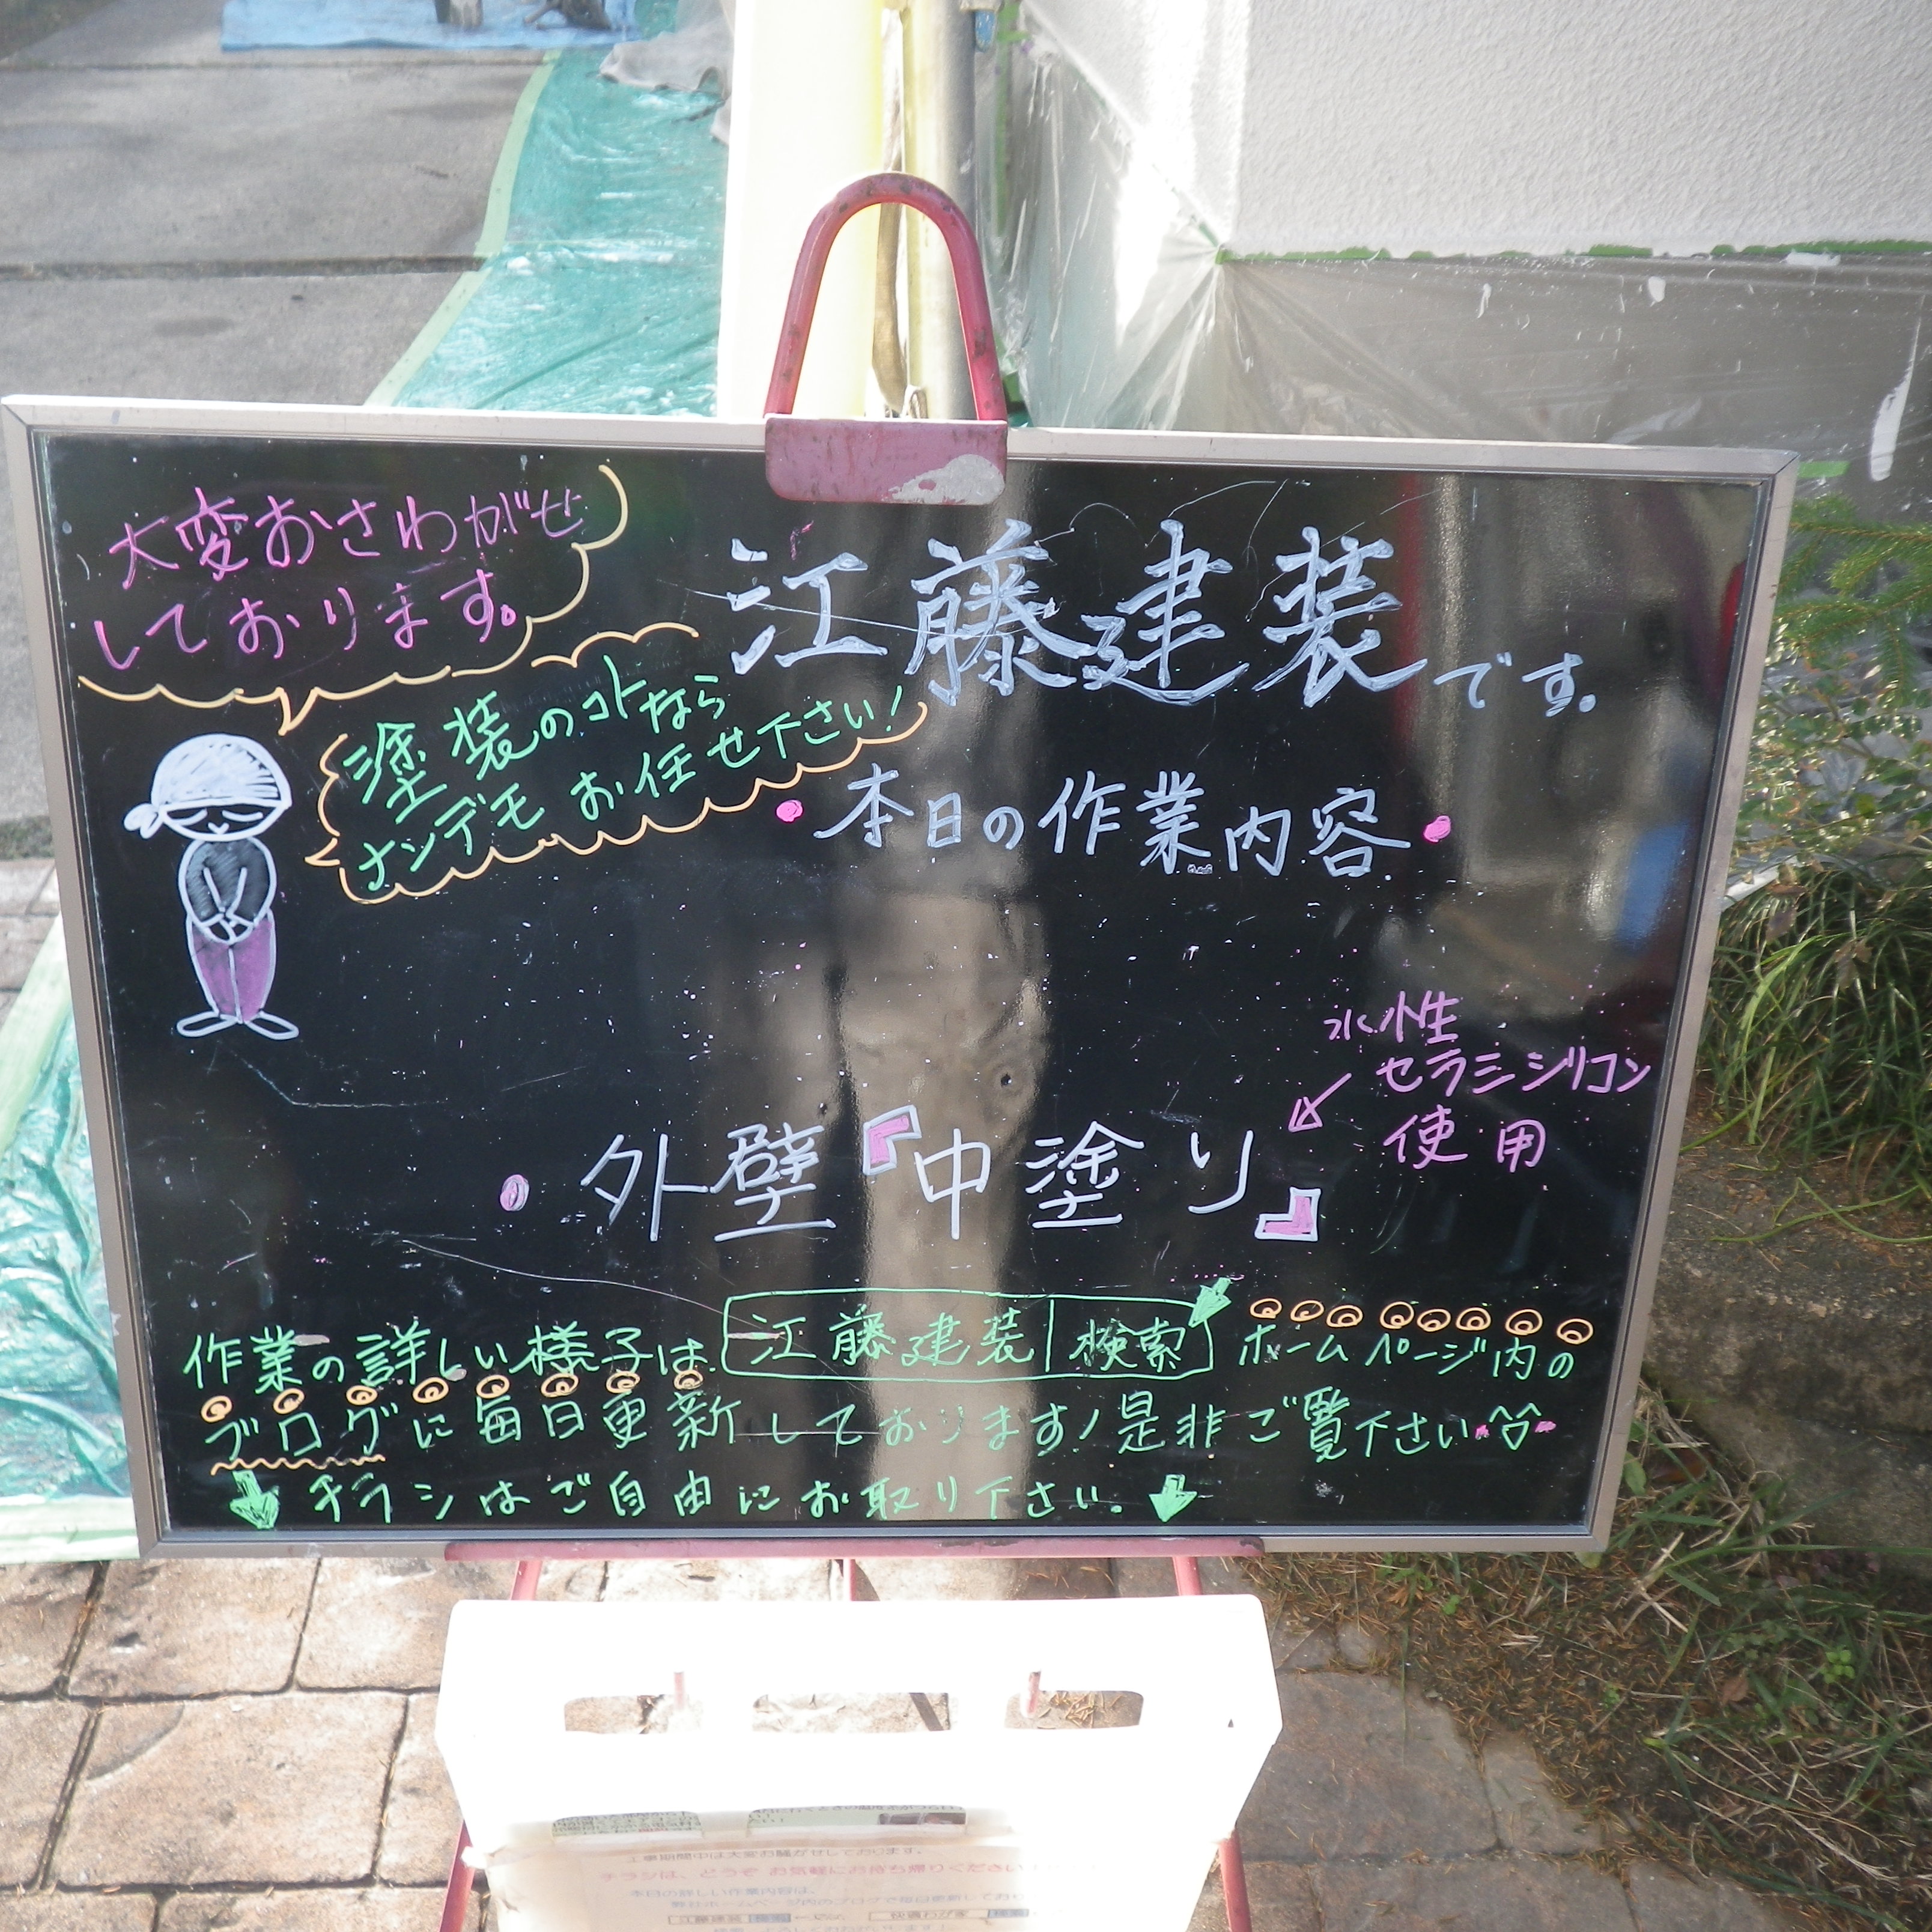 大変おさわがせ
しております。
江藤建装です。
塗装のコトなら
ナンデモお任せ下さい!
本日の作業内容
水性
セラミシリコン
使用
外壁『中塗り』
作業の詳しい様子は 江藤建装 検索 ホームページ内の
ブログに毎日更新しております!是非ご覧下さい^^
チラシはご自由にお取り下さい。
工事期間中は大変お騒がせしております。
チラシは、どうぞ お気軽にお持ち帰りください
本日の詳しい作業内容は、